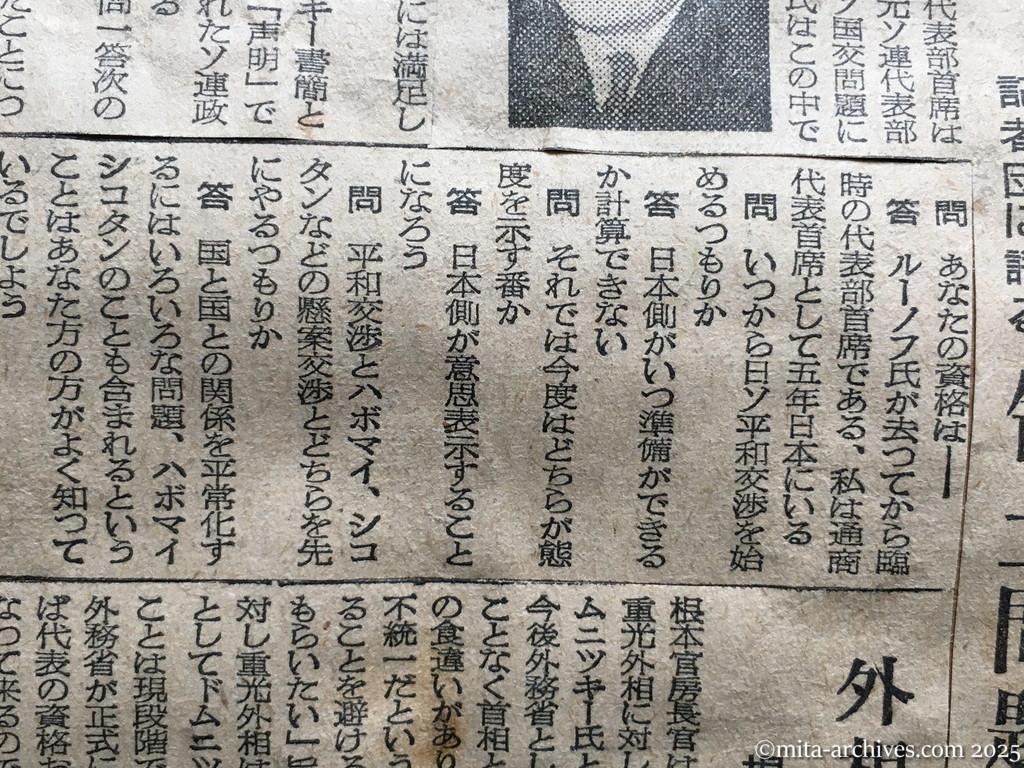 記者団に語る
代表部首席は
元ソ連代表部
ソ国交問題に
氏はこの中で
には満足し
キー書簡と
「声明」で
れたソ連政
問一答次の
たことにつ
問　あなたの資格は――
答　ルーノフ氏が去つてから臨
時の代表部首席である、私は通商
代表首席として五年日本にいる
問　いつから日ソ平和交渉を始
めるつもりか
答　日本側がいつ準備ができる
か計算できない
問　それでは今度はどちらが態
度を示す番か
答　日本側が意思表示すること
になろう
問　平和交渉とハボマイ、シコ
タンなどの懸案交渉とどちらを先
にやるつもりか
答　国と国との関係を平常化す
るにはいろいろな問題、ハボマイ
シコタンのことも含まれるという
ことはあなた方の方がよく知つて
いるでしよう
外相
根本官房長官は
重光外相に対し
ムニツキー氏と
今後外務省とし
ことなく首相と
の食違いがあり
不統一だという
ることを避ける
もらいたい」旨
対し重光外相は
としてドムニツ
ことは現段階で
外務省が正式に
ば代表の資格お
なつて来るので
©mita-archives.com 2025